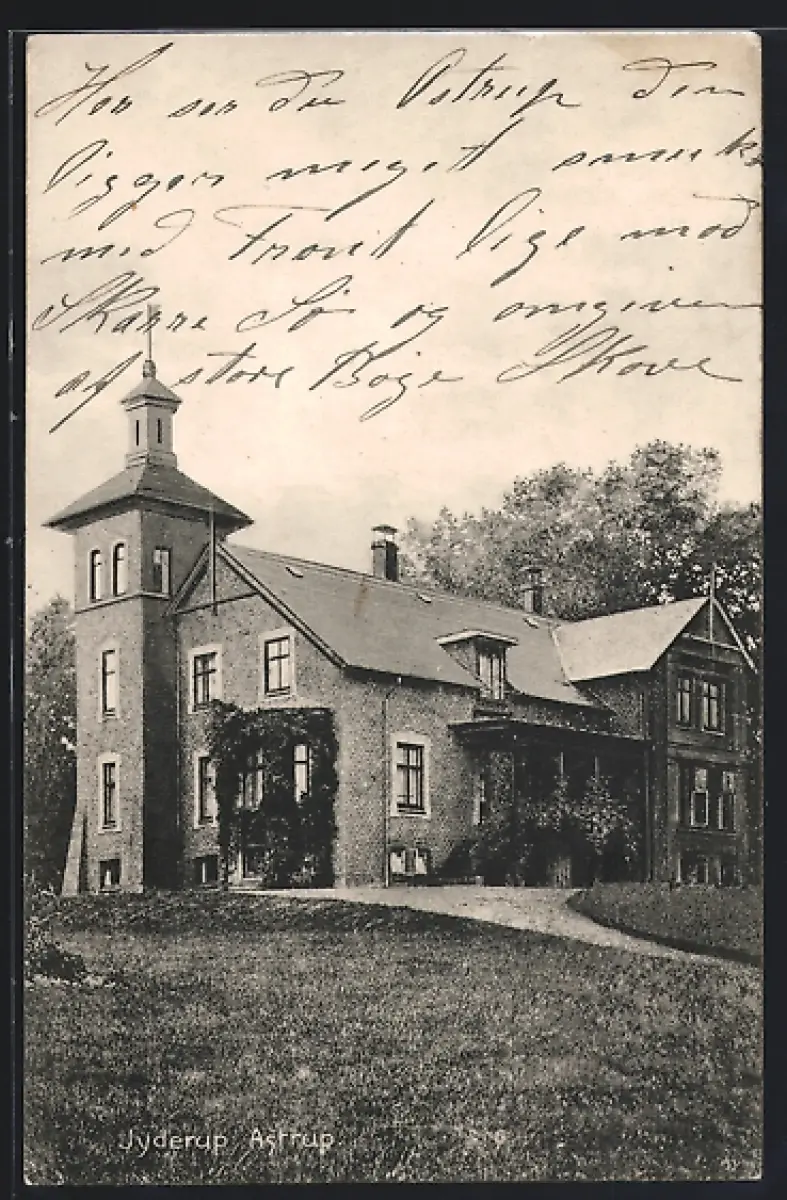 Her ser du Østrup den
ligger meget smukt
med Front lige mod
Skarre Sø og omgiven
af store Bøge Skove
Jyderup Astrup.